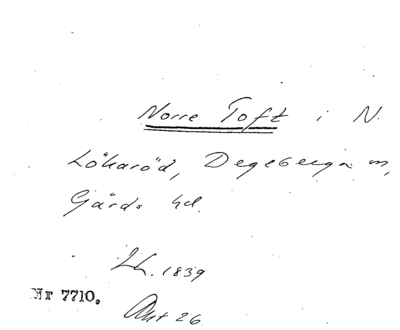 Norre Toft i N.
Lökaröd, Degeberga sn,
Gärds hd.
Lk. 1839
Nr 7710.
Akt 26